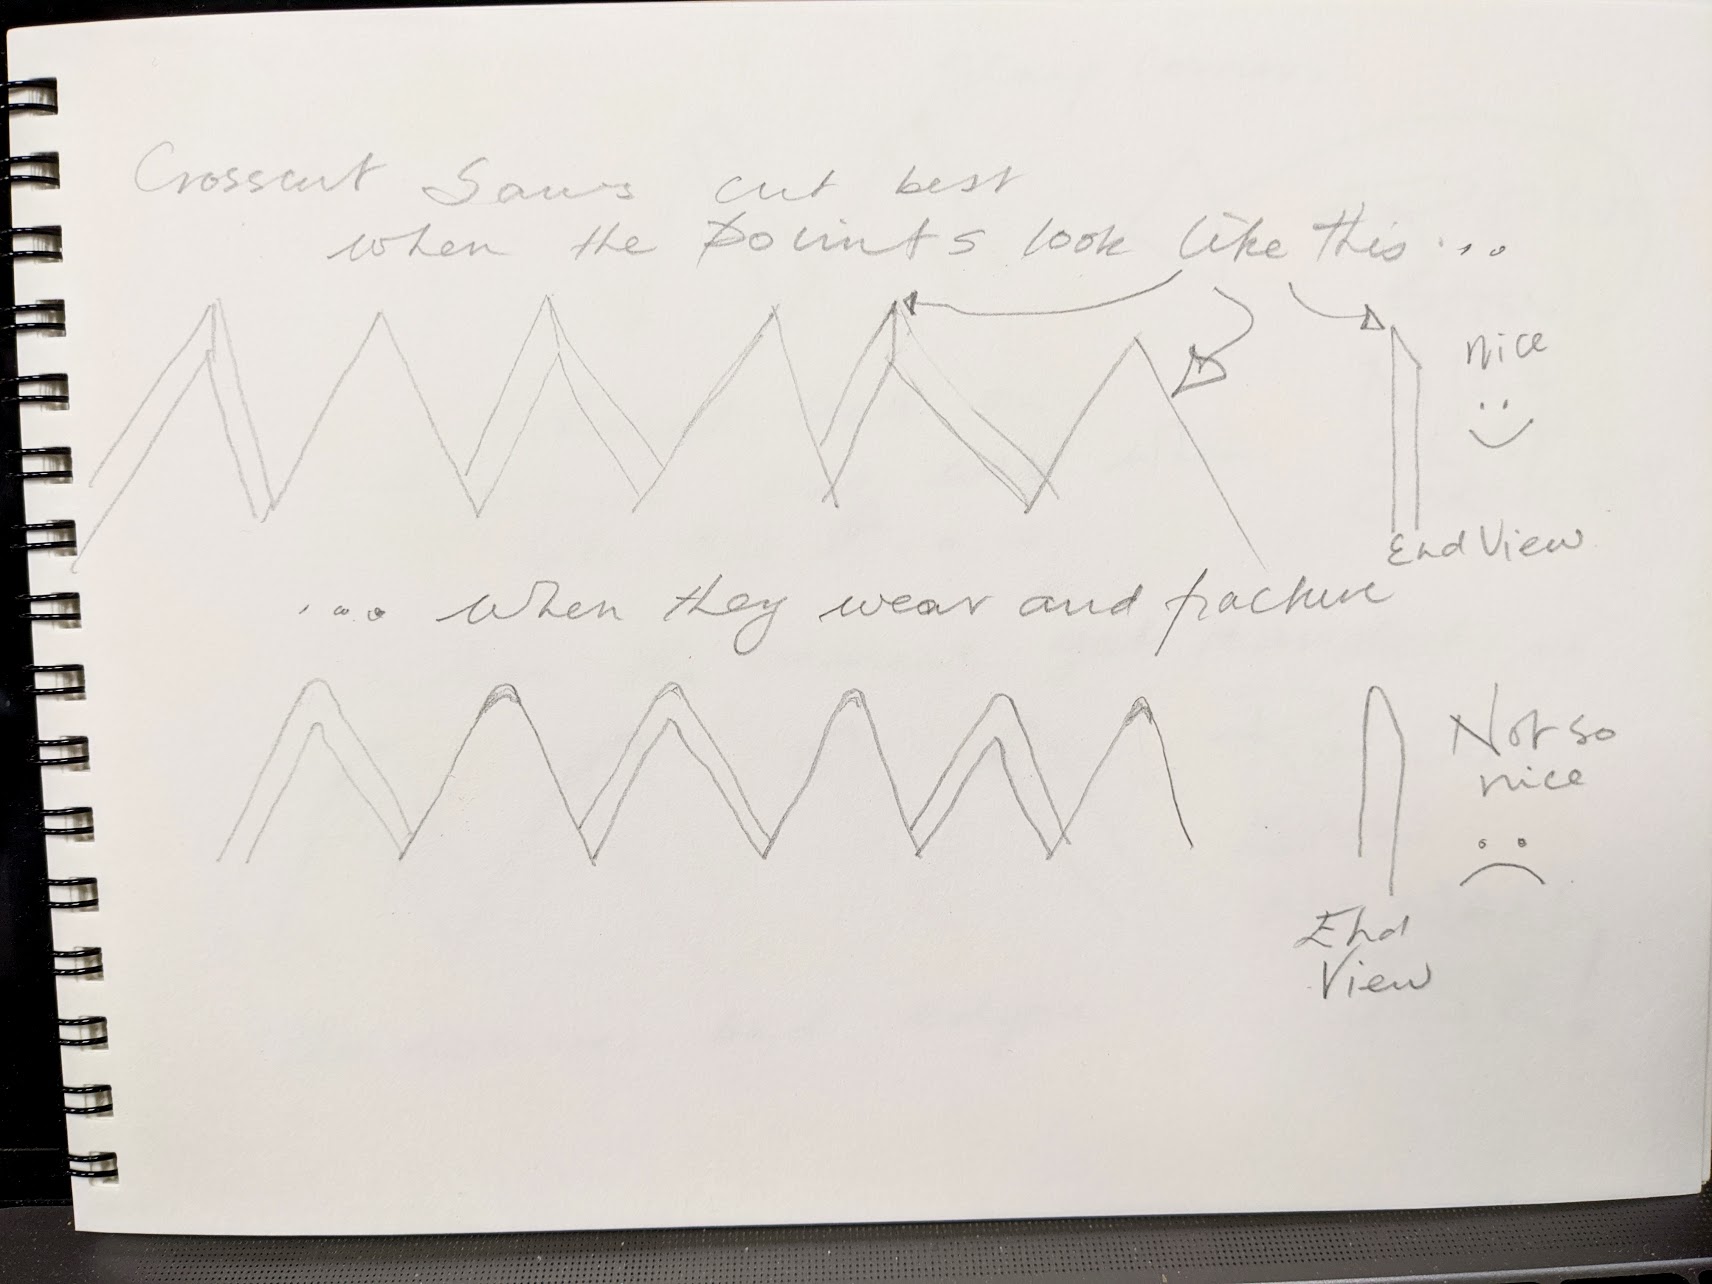 Crosscut Saws cut best
when the points look like this...
nice
End View
... when they wear and fracture
Not so
nice
End
View